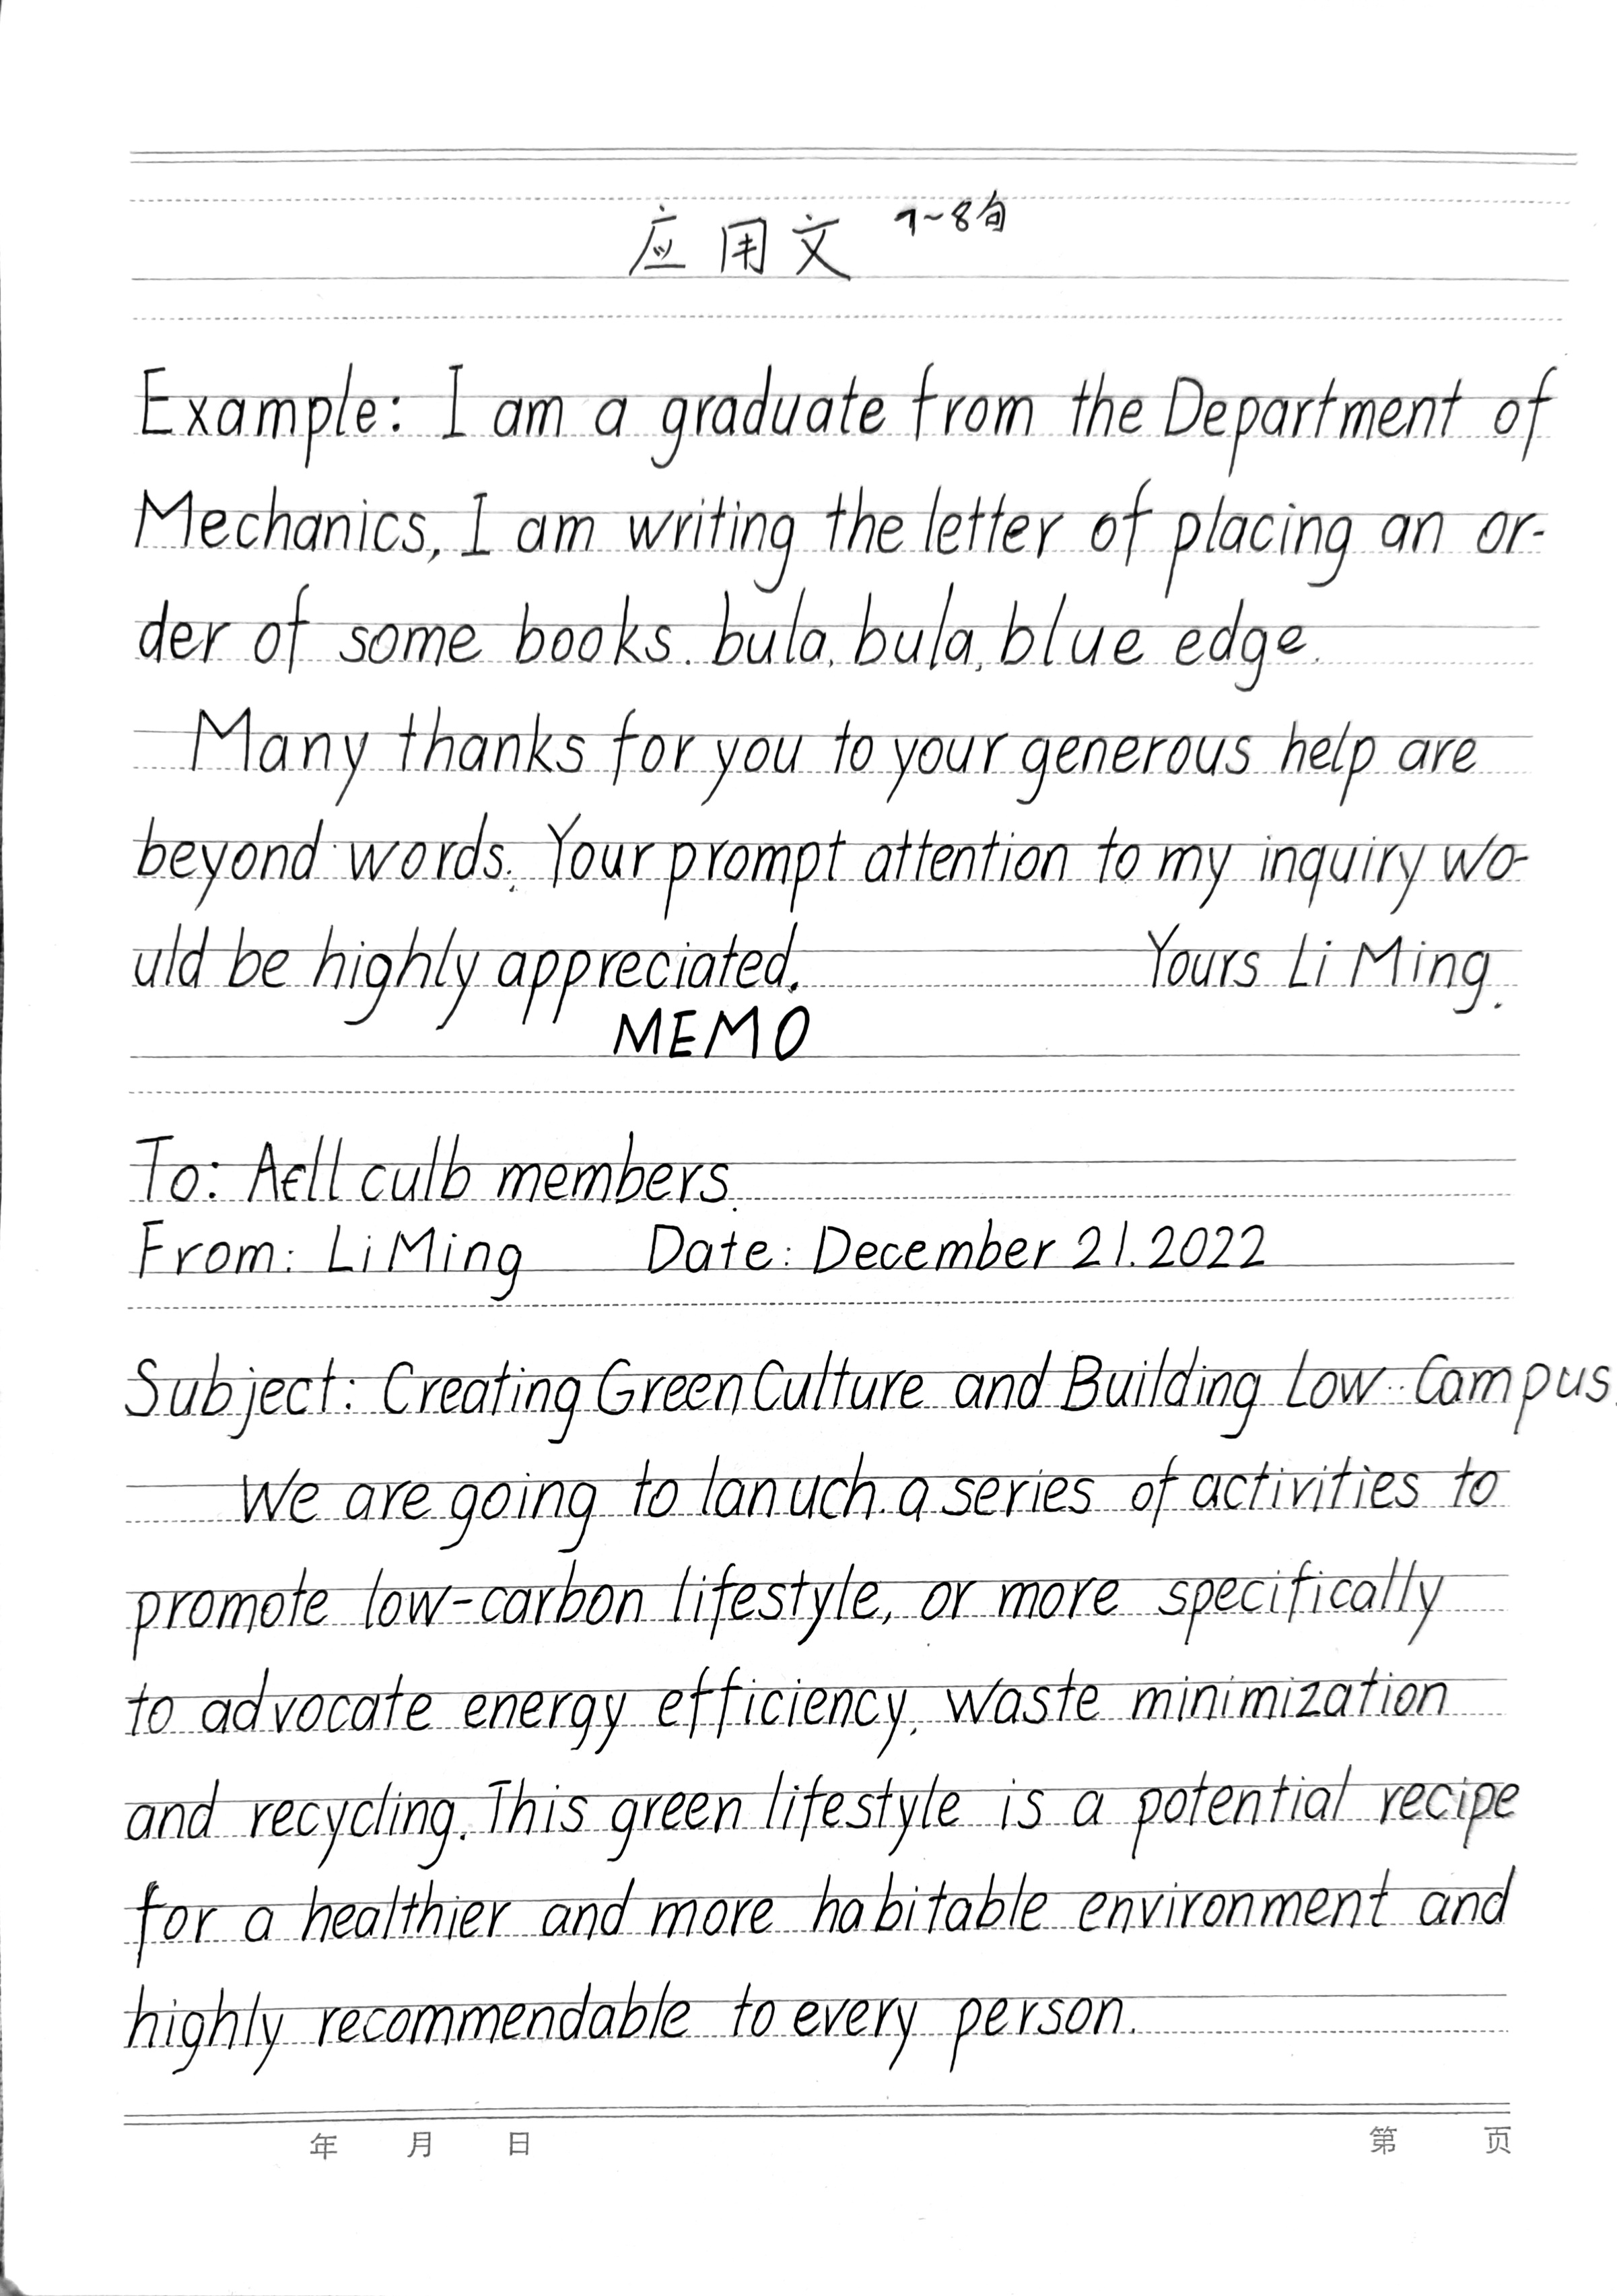 应用文 7~8句
Example: I am a graduate from the Department of
Mechanics, I am writing the letter of placing an or-
der of some books. bula, bula, blue edge.
Many thanks for you to your generous help are
beyond words. Your prompt attention to my inquiry wo-
uld be highly appreciated. Yours Li Ming.
MEMO
To: Aell culb members.
From: Li Ming Date: December 21.2022
Subject: Creating Green Culture and Building Low-Campus.
We are going to lanuch a series of activities to
promote low-carbon lifestyle, or more specifically
to advocate energy efficiency, waste minimization
and recycling. This green lifestyle is a potential recipe
for a healthier and more habitable environment and
highly recommendable to every person.
年 月 日 第 页